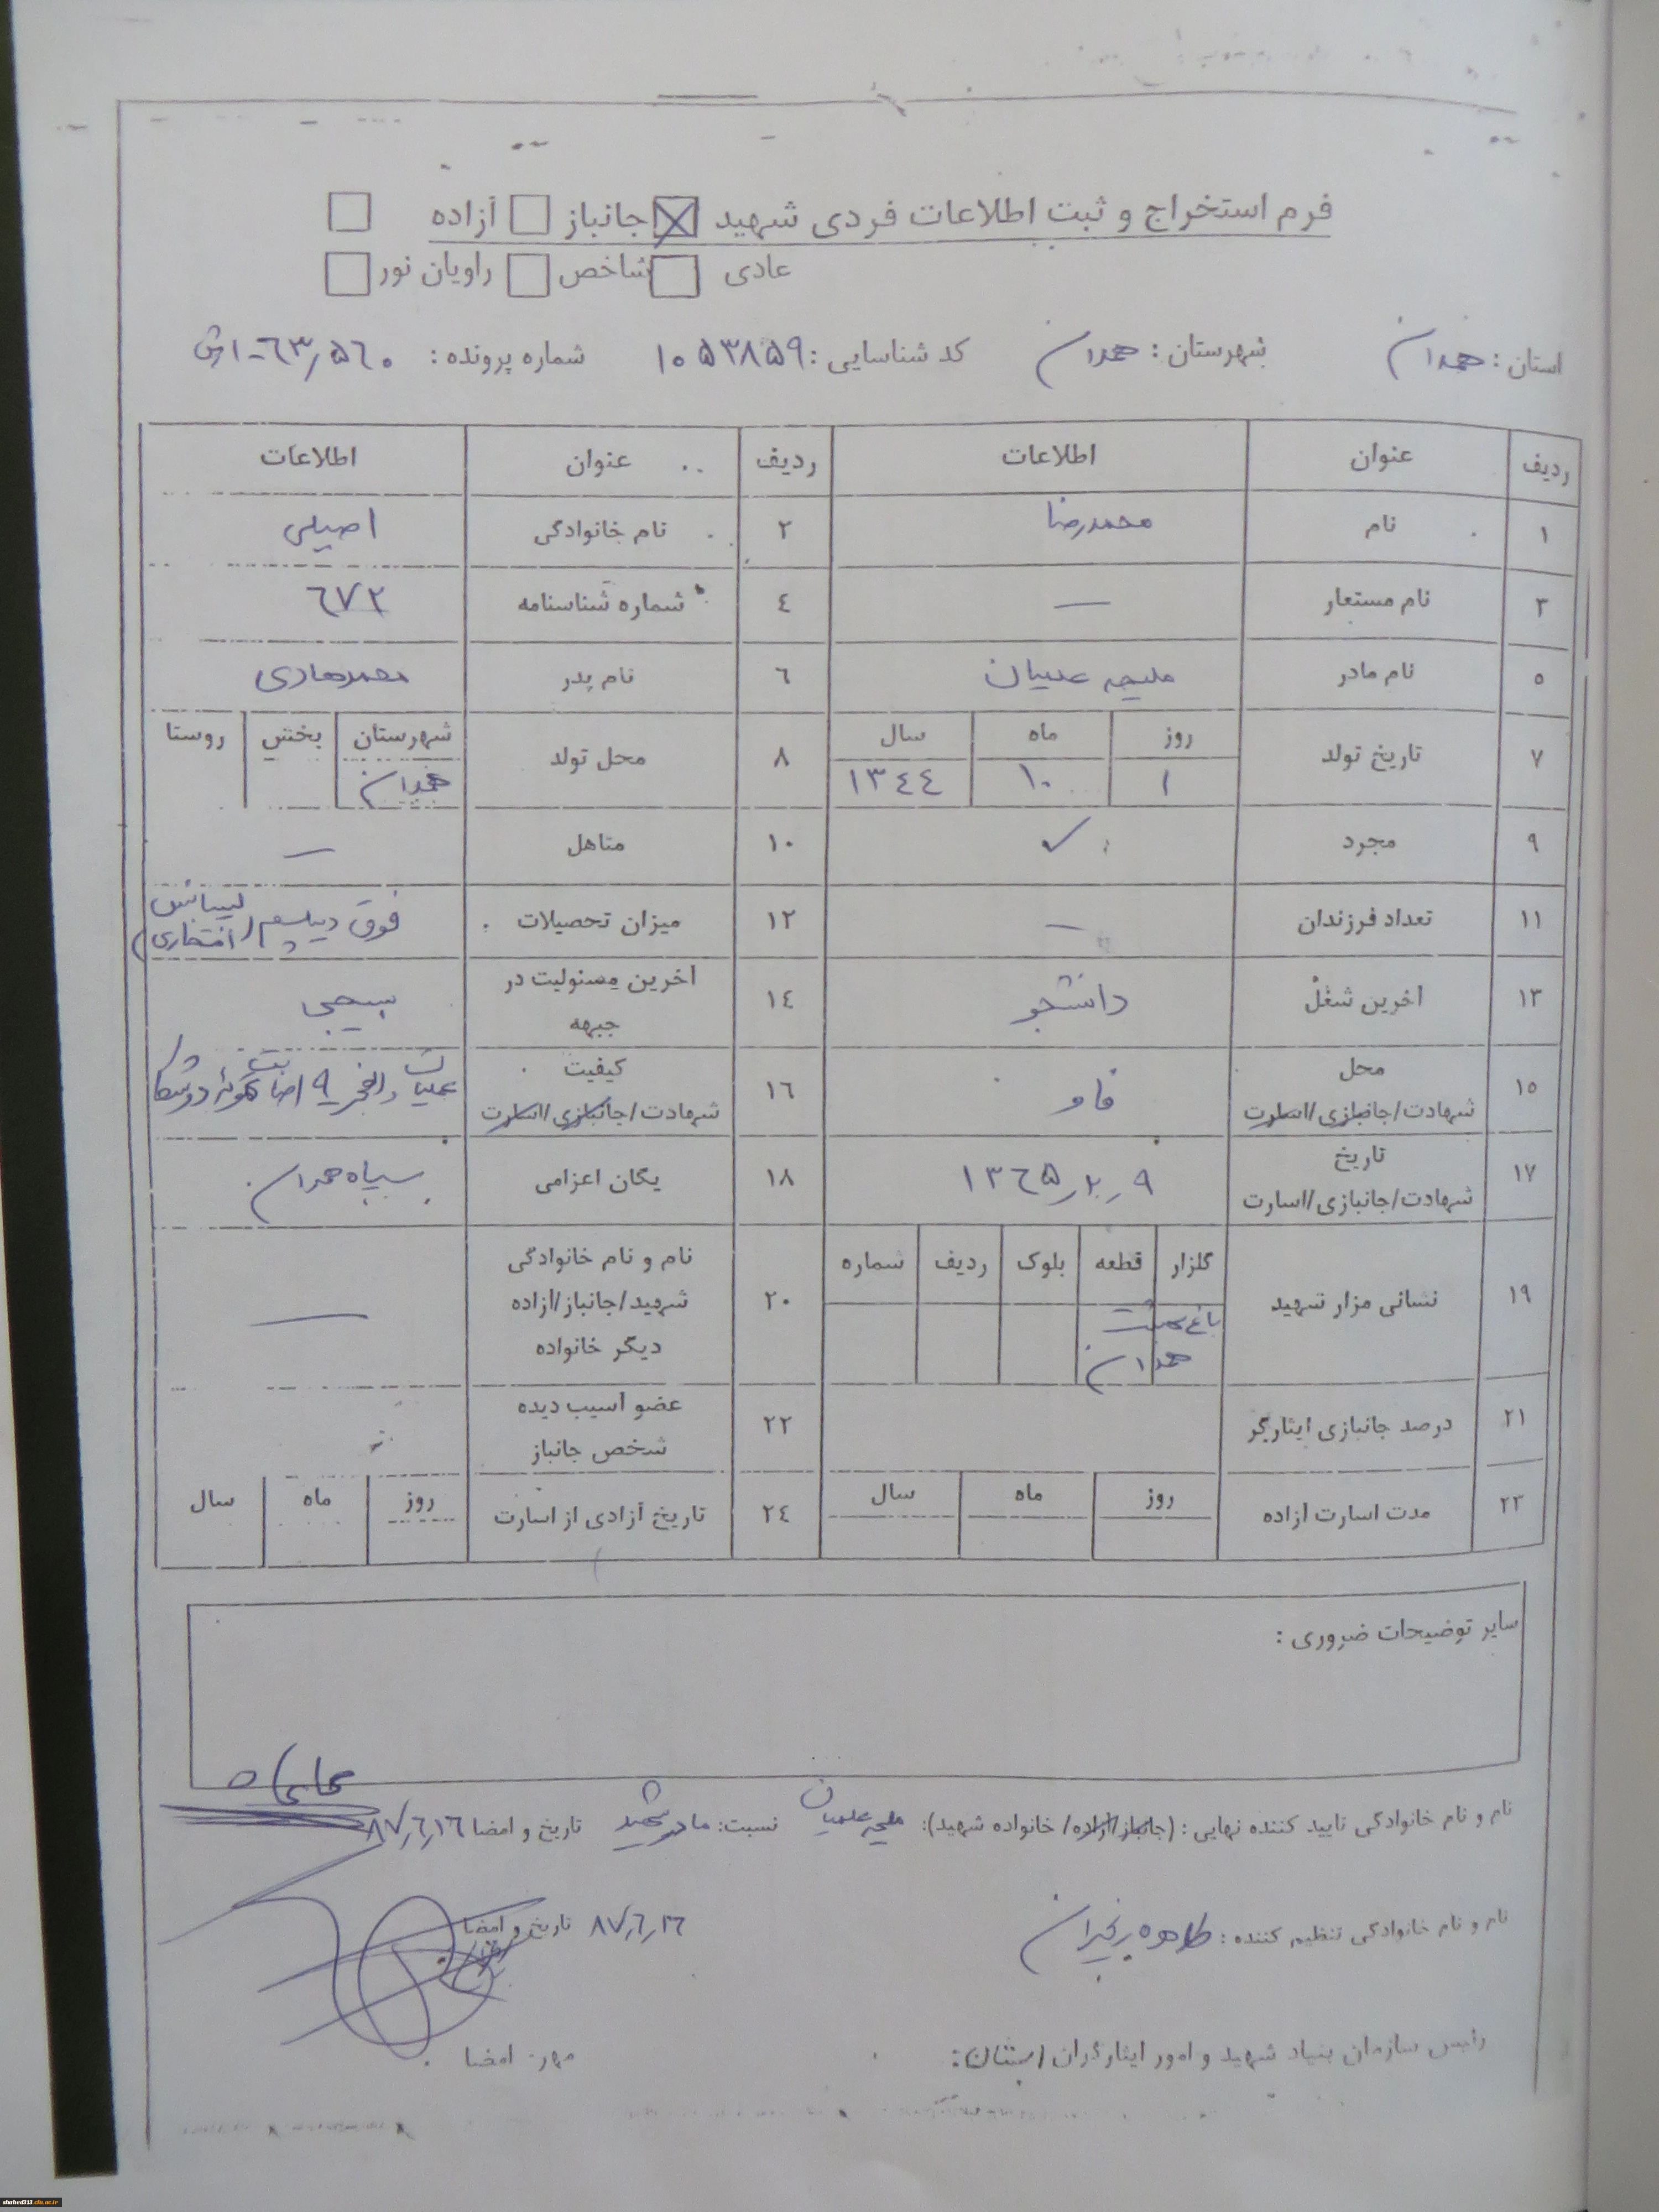 فرم استخراج و ثبت اطلاعات فردی شهید جانباز آزاده
عادی شاخص راویان نور
استان: همدان شهرستان: همدان کد شناسایی: ۱۰۵۳۸۵۹ شماره پرونده:
ردیف عنوان اطلاعات ردیف عنوان اطلاعات
۱ نام محمدرضا ۲ نام خانوادگی اصیلی
۳ نام مستعار — ٤ شماره شناسنامه ٦٧٢
٥ نام مادر ملیحه علمیان ٦ نام پدر محمدهادی
٧ تاریخ تولد روز ماه سال ٨ محل تولد شهرستان بخش روستا
١ ١٠ ١٣٤٤ همدان
٩ مجرد ✓ ١٠ متاهل —
١١ تعداد فرزندان — ١٢ میزان تحصیلات فوق دیپلم (لیسانس افتخاری)
١٣ آخرین شغل دانشجو ١٤ آخرین مسئولیت در جبهه بسیجی
١٥ محل شهادت/جانبازی/اسارت فاو ١٦ کیفیت شهادت/جانبازی/اسارت عملیات والفجر
١٧ تاریخ شهادت/جانبازی/اسارت ١٣٦٥٫٢٫٩ ١٨ یگان اعزامی سپاه همدان
١٩ نشانی مزار شهید گلزار قطعه بلوک ردیف شماره ٢٠ نام و نام خانوادگی شهید/جانباز/آزاده دیگر خانواده —
باغ بهشت
همدان
٢١ درصد جانبازی ایثارگر ٢٢ عضو آسیب دیده شخص جانباز
٢٣ مدت اسارت آزاده روز ماه سال ٢٤ تاریخ آزادی از اسارت روز ماه سال
سایر توضیحات ضروری:
نام و نام خانوادگی تایید کننده نهایی: (جانباز/آزاده/ خانواده شهید): ملیحه علمیان نسبت: مادر شهید تاریخ و امضا ٨٧٫٦٫١٦
نام و نام خانوادگی تنظیم کننده: طاهره ٨٧٫٦٫١٦ تاریخ و امضا
رئیس سازمان بنیاد شهید و امور ایثارگران استان: مهر: امضا
shahed313.cfu.ac.ir